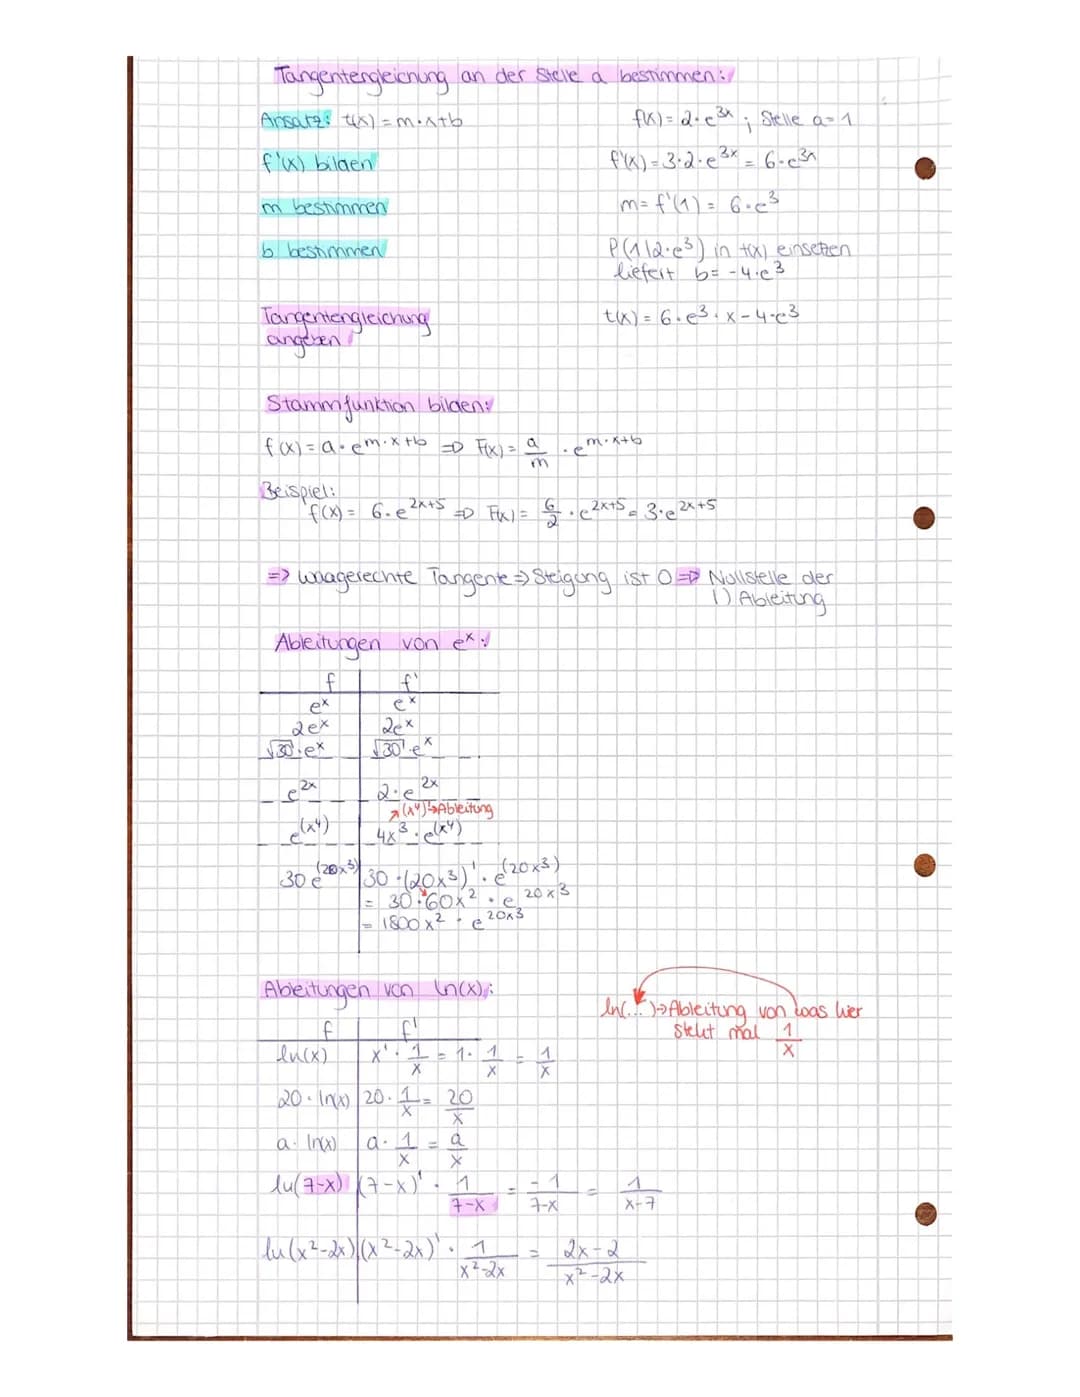 Tangentengleichung an der Stelle a bestimmen:
Ansatz: t(x) = m·x+b
f(x) = 2·e^{3x} ; Stelle a = 1
f'(x) bilden
f'(x) = 3·2·e^{3x} = 6·e^{3x}
m bestimmen
m = f'(1) = 6·e^3
b bestimmen
P(1|2·e^3) in t(x) einsetzen
liefert b = -4·e^3
Tangentengleichung
angeben
t(x) = 6·e^3·x-4·e^3
Stammfunktion bilden:
f(x) = a·e^{m·x+b} => F(x) = a/m · e^{m·x+b}
Beispiel:
f(x) = 6·e^{2x+5} => F(x) = 6/2 · e^{2x+5} = 3·e^{2x+5}
=> waagerechte Tangente => Steigung ist 0 => Nullstelle der
1) Ableitung
Ableitungen von e^x:
f f'
e^x e^x
2e^x 2e^x
√30·e^x √30·e^x
e^{2x} 2·e^{2x}
(x^4)'→Ableitung
e^{(x^4)} 4x^3·e^{(x^4)}
30 e^{(20x^3)} 30·(20x^3)'·e^{(20x^3)}
= 30·60x^2·e^{20x^3}
= 1800x^2·e^{20x^3}
Ableitungen von ln(x):
ln(...)→Ableitung von was hier
steht mal 1/x
f f'
ln(x) x'·1/x = 1·1/x = 1/x
20·ln(x) 20·1/x = 20/x
a·ln(x) a·1/x = a/x
ln(7-x) (7-x)'·1/7-x = -1/7-x = 1/x-7
ln(x^2-2x) (x^2-2x)'·1/x^2-2x = 2x-2/x^2-2x